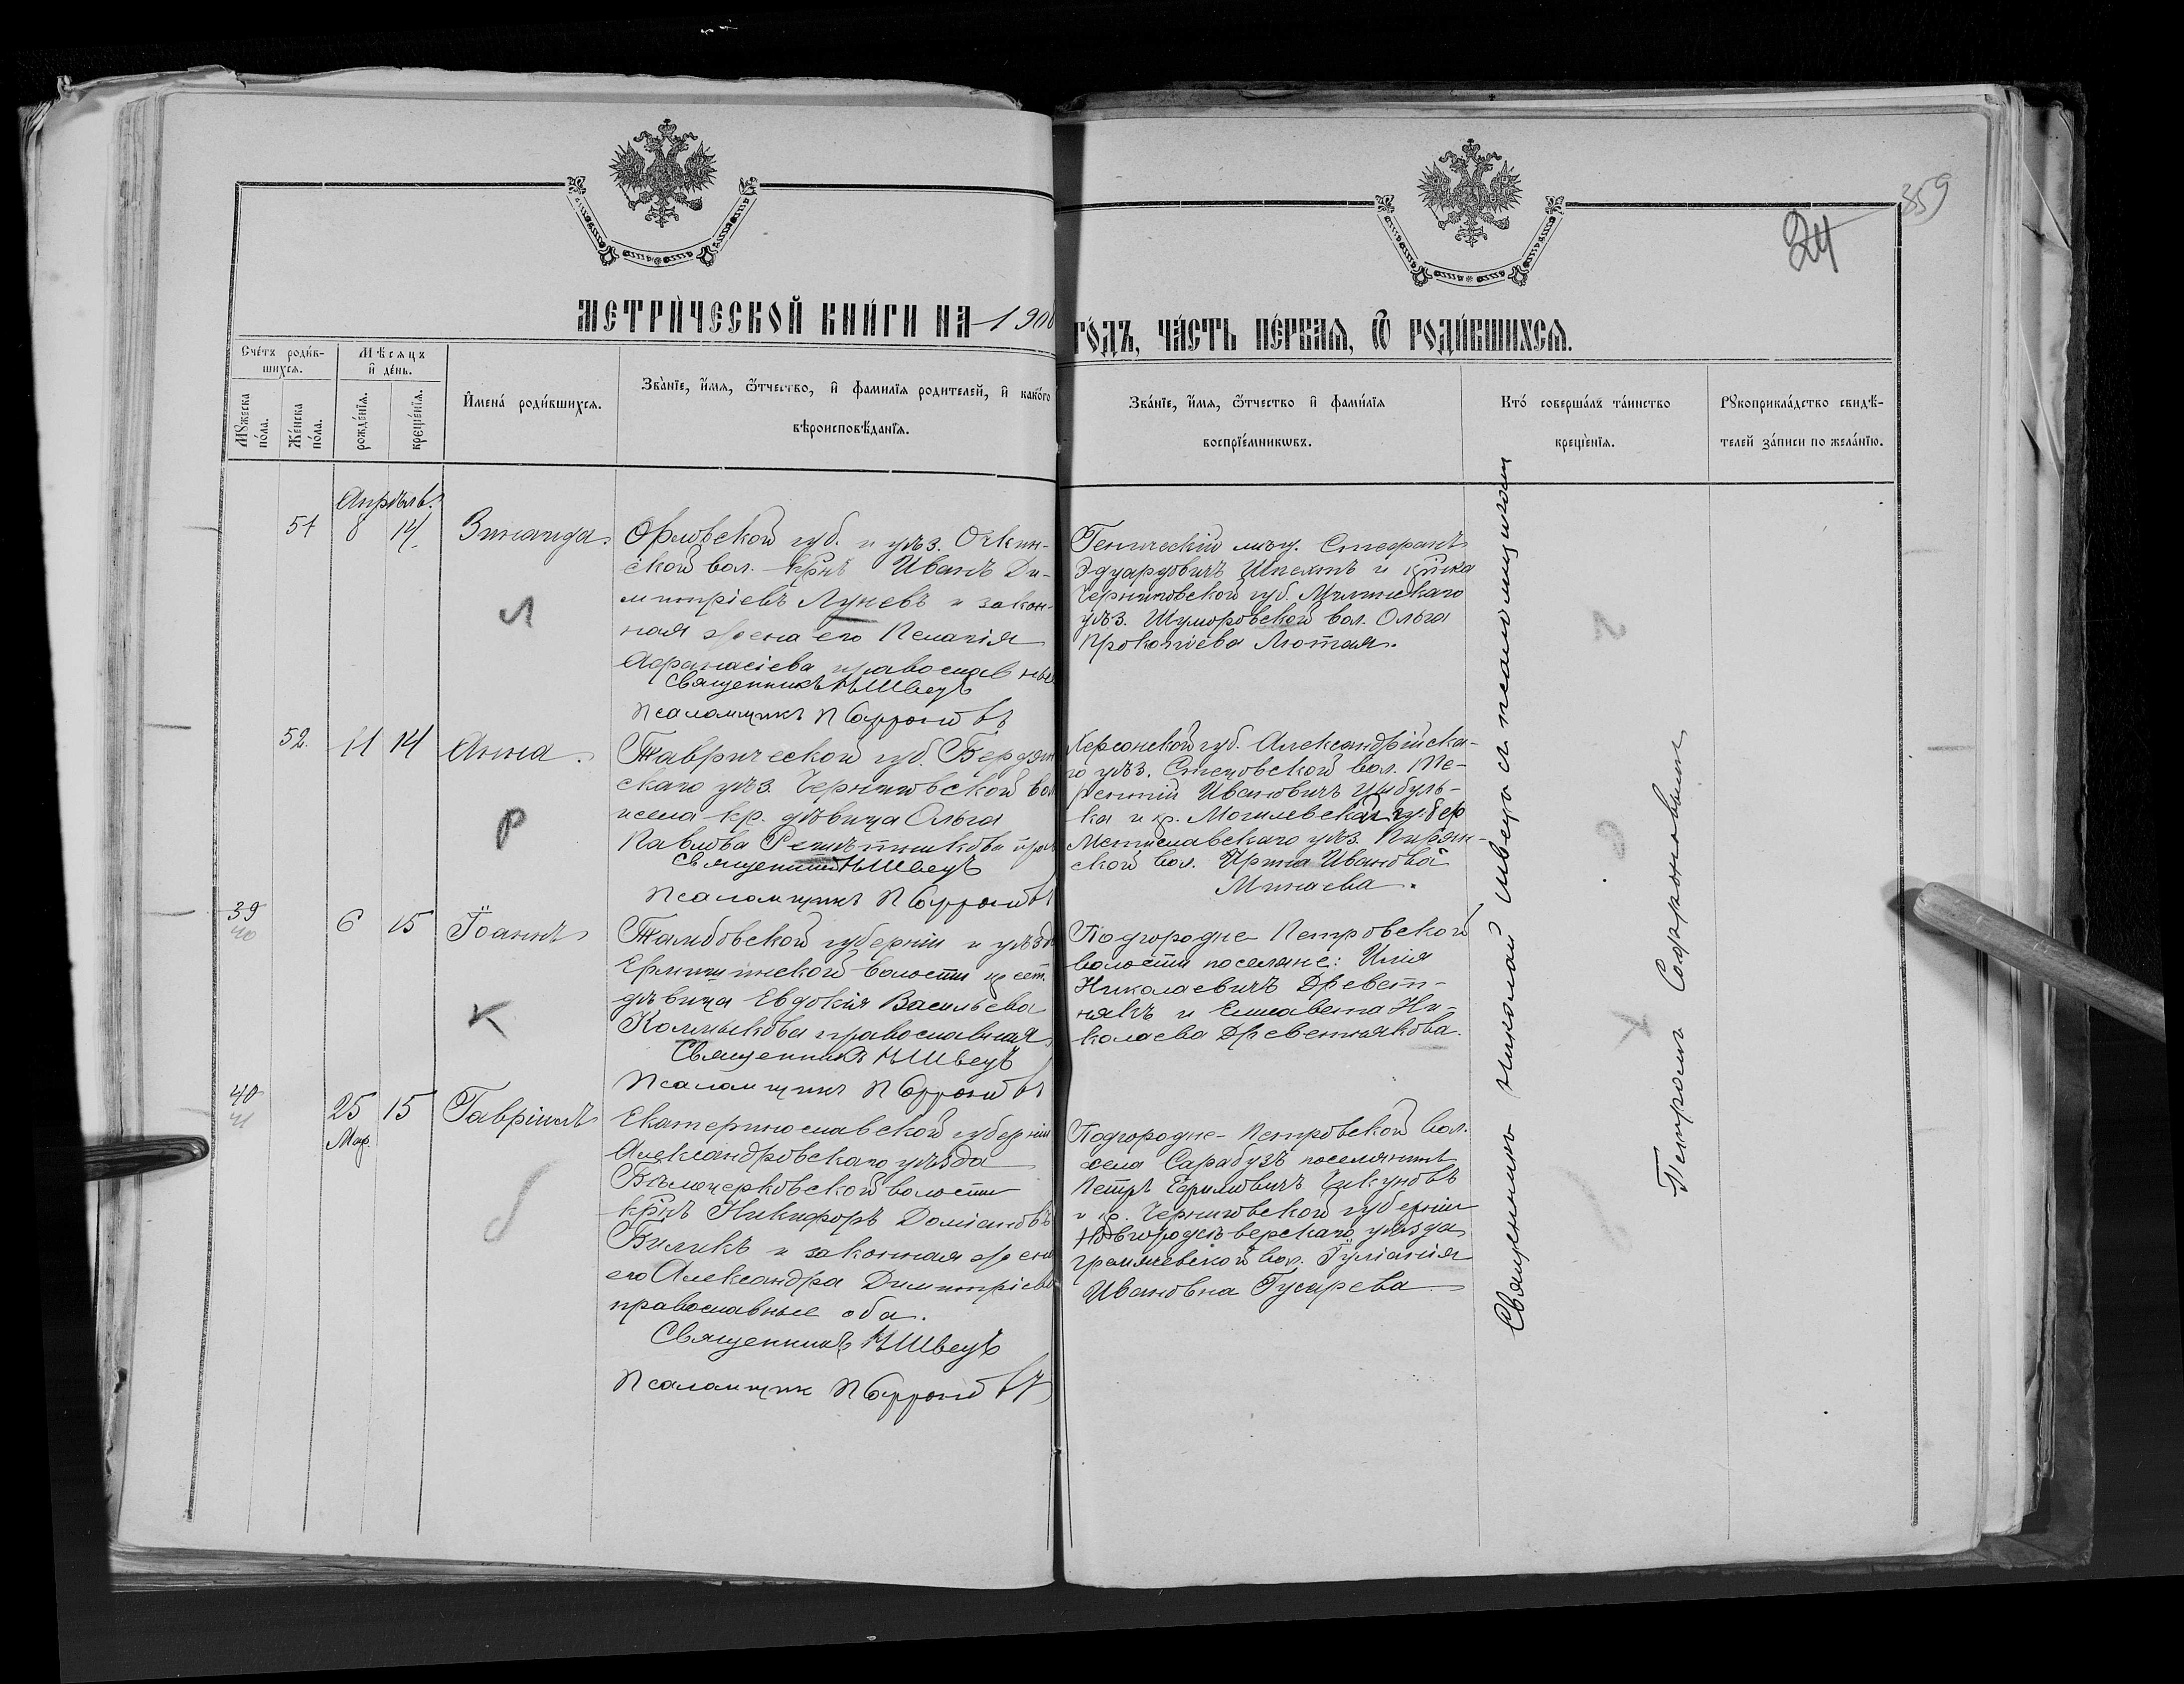 359
24
МЕТРИ́ЧЕСКОЙ КНИ́ГИ НА 190
ГО́ДЪ, ЧА́СТЬ ПЕ́РВАѦ, Ѿ РОДИ́ВШИХСѦ.
Сче́тъ роди́в-
шихсѧ.
Мꙋ́жеска по́ла.
Же́нска по́ла.
Мѣ́сѧцъ
и҆ де́нь.
рожде́нїѧ.
креще́нїѧ.
И҆мена̀ роди́вшихсѧ.
Зва́нїе, и҆́мѧ, ѻ҆́тчество, и҆ фами́лїѧ роди́телей, и҆ како́гѡ
вѣроисповѣ́данїѧ.
Зва́нїе, и҆́мѧ, ѻ҆́тчество и҆ фами́лїѧ
воспрїе́мникѡвъ.
Кто̀ соверша́лъ та́инство
креще́нїѧ.
Рꙋкоприкла́дство свидѣ́-
телей за́писи по жела́нїю.
Апрѣль.
51 8 14 Зинаида.
Орловской губ. и уѣз.
ской вол. крнъ Иванъ Ди-
митріевъ Луневъ и закон-
ная жена его Пелагія
Аѳанасіева православные
Священникъ Н Швецъ
Псаломщикъ П Софроновъ
Геническій мѣщ. Стефанъ
Эдуардовичъ Шпехтъ и крнка
Черниговской губ. Мглинскаго
уѣз. Шуморовской вол. Ольга
Прокопіева Лютая.
Л
52. 11 14 Анна.
Таврической губ. Бердян
скаго уѣз. Черниговской вол
и села кр. дѣвица Ольга
Павлова Решетникова прав
Священникъ Н Швецъ
Псаломщикъ П Софроновъ
Херсонской губ. Александрійска-
го уѣз. Стецовской вол. Те-
рентій Ивановичъ Цыбуль-
ка и кр. Могилевской губер
Мстиславскаго уѣз.
ской вол. Ирина Иванова
Минаева.
Р
39
40
6 15 Іоаннъ
Тамбовской губерніи и уѣзда
волости крест.
дѣвица Евдокія Васильева
Колмыкова православная
Священникъ Н Швецъ
Псаломщикъ П Софроновъ
Подгородне-Петровской
волости поселяне: Илія
Николаевичъ Древет-
някъ и Елисавета Ни-
колаева Древетнякова.
К
40
41
25 15 Гавріилъ
Мар.
Екатеринославской губерніи
Александровскаго уѣзда
Бѣлоцерковской волости
крнъ Никифоръ Доміановъ
Билыкъ и законная жена
его Александра Димитріева
православные оба.
Священникъ Н Швецъ
Псаломщикъ П Софроновъ
Подгородне-Петровской вол.
села Сарабузъ поселянинъ
Петръ Ефимовичъ Чикуновъ
и кр. Черниговской губерніи
Новгородсѣверскаго уѣзда
вол. Іуліанія
Ивановна Гусарева
Священникъ Николай Швецъ съ псаломщикомъ
Петромъ Софроновымъ